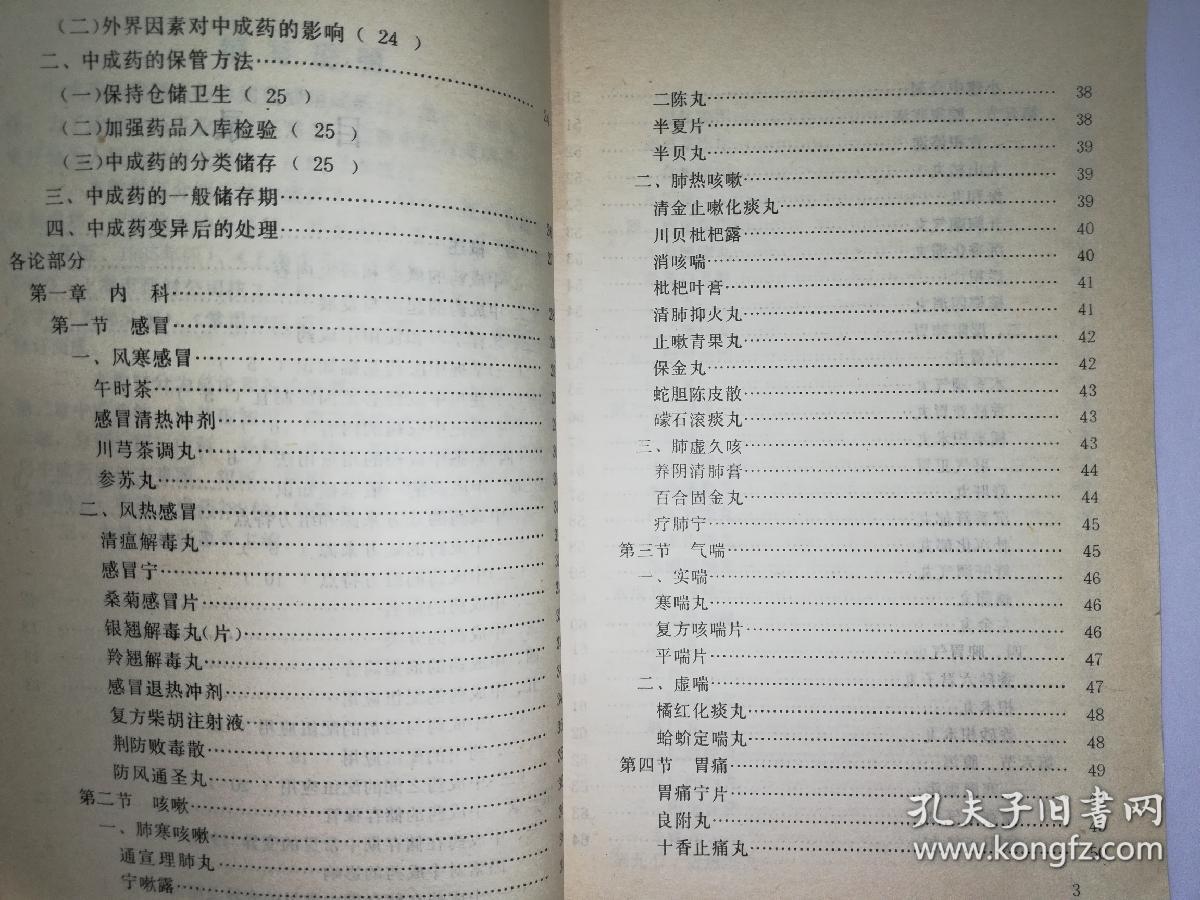 （二）外界因素对中成药的影响（24）
二、中成药的保管方法
（一）保持仓储卫生（25）
（二）加强药品入库检验（25）
（三）中成药的分类储存（25）
三、中成药的一般储存期
四、中成药变异后的处理
各论部分
第一章 内 科
第一节 感冒
一、风寒感冒
午时茶
感冒清热冲剂
川芎茶调丸
参苏丸
二、风热感冒
清瘟解毒丸
感冒宁
桑菊感冒片
银翘解毒丸（片）
羚翘解毒丸
感冒退热冲剂
复方柴胡注射液
荆防败毒散
防风通圣丸
第二节 咳嗽
一、肺寒咳嗽
通宣理肺丸
宁嗽露
二陈丸 38
半夏片 38
半贝丸 39
二、肺热咳嗽 39
清金止嗽化痰丸 39
川贝枇杷露 40
消咳喘 40
枇杷叶膏 41
清肺抑火丸 41
止嗽青果丸 42
保金丸 42
蛇胆陈皮散 43
礞石滚痰丸 43
三、肺虚久咳 43
养阴清肺膏 44
百合固金丸 44
疗肺宁 45
第三节 气喘 45
一、实喘 46
寒喘丸 46
复方咳喘片 46
平喘片 47
二、虚喘 47
橘红化痰丸 48
蛤蚧定喘丸 48
第四节 胃痛 49
胃痛宁片
良附丸
十香止痛丸
3
孔夫子旧书网
www.kongfz.com